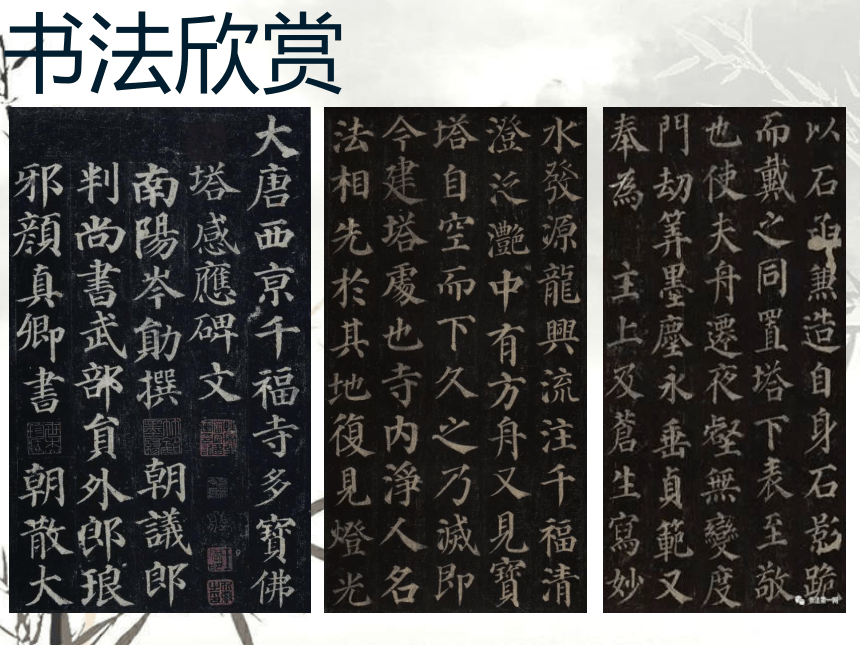 书法欣赏
大唐西京千福寺多寶佛
塔感應碑文
南陽岑勛撰 朝議郎
判尚書武部員外郎琅
邪顔真卿書 朝散大
水發源龍興流注千福清
澄泛灔中有方舟又見寶
塔自空而下久之乃滅即
今建塔處也寺内淨人名
法相先於其地復見燈光
以石函兼造自身石影跪
而戴之同置塔下表至敬
也使夫舟遷夜壑無變度
門劫筭墨塵永垂貞範又
奉為 主上及蒼生寫妙
书法第一网